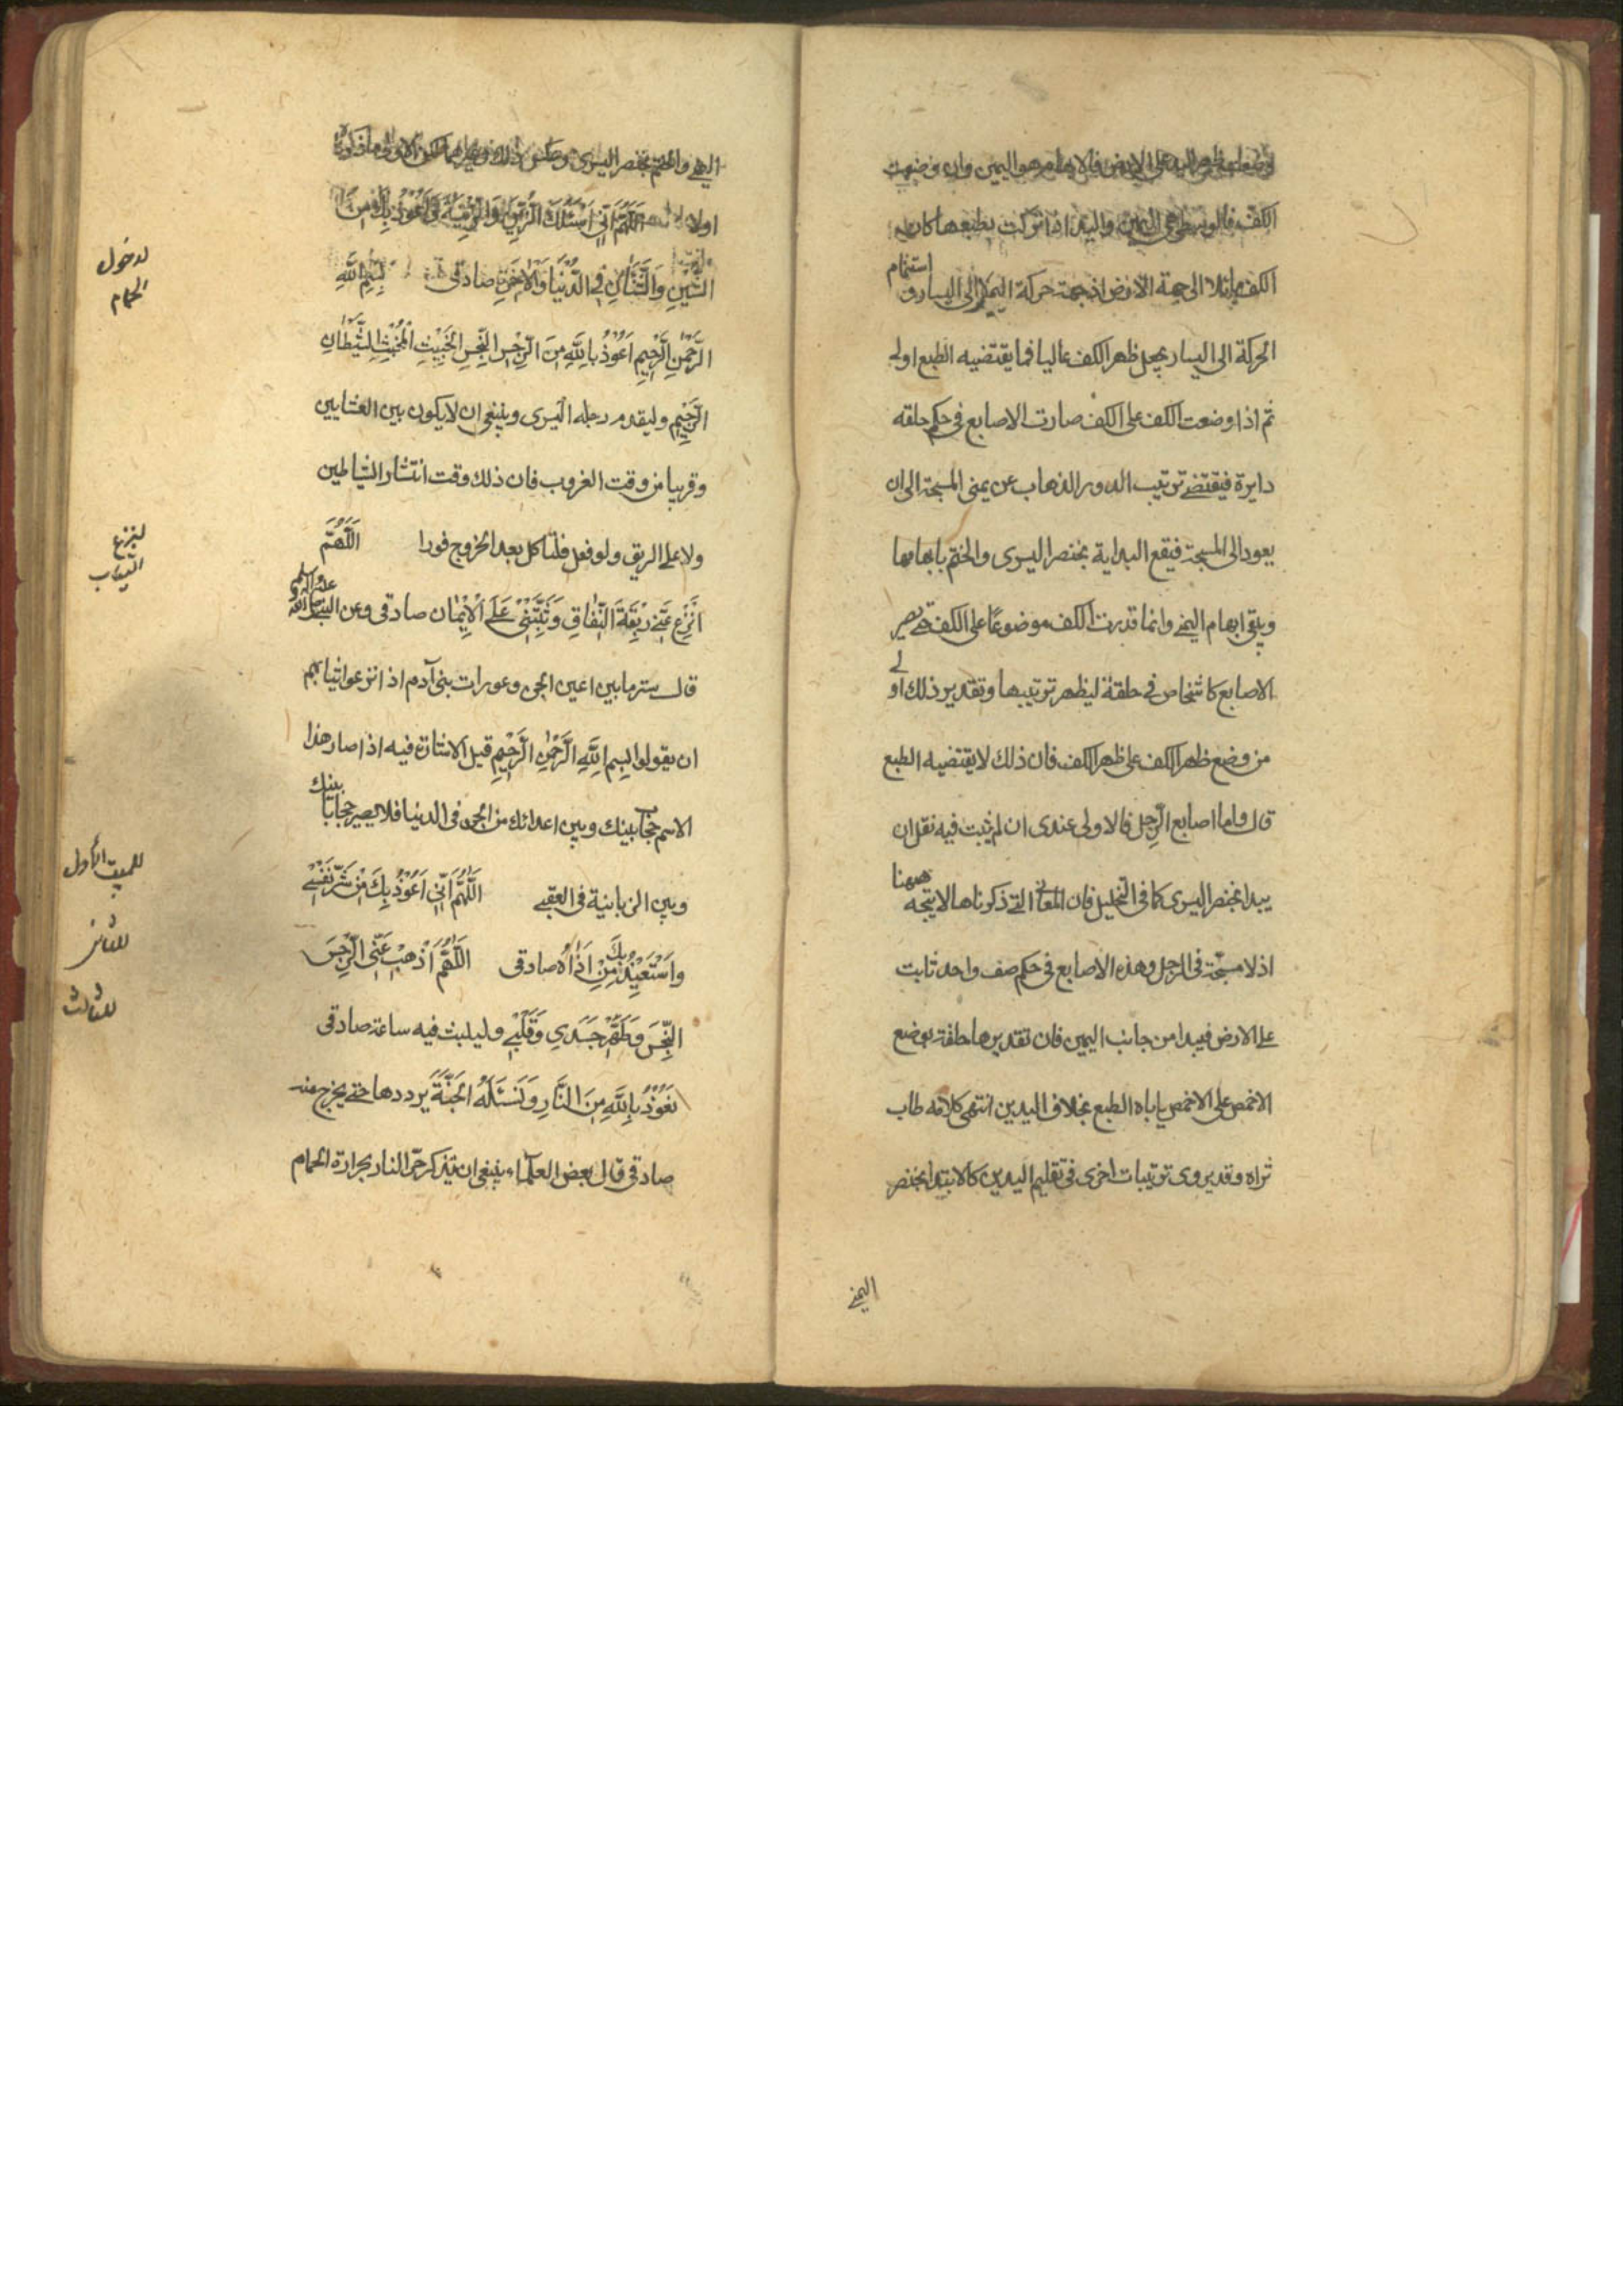 لو ضعت ظهر اليد على الارض فالابهام هو اليمين وان وضعت
الكف فالوسطى هى اليمين واليد اذا تركت بطبعها كان
الكف مائلا الى جهة الارض اذ جهة حركة اليمين الى اليسار و استتمام
الحركة الى اليسار يجعل ظهر الكف عاليا فما يقتضيه الطبع اولى
ثم اذا وضعت الكف على الكف صارت الاصابع فى حكم حلقه
دايرة فيقتضى ترتيب الدور الذهاب عن يمنى المسبحة الى ان
يعود الى المسبحة فيقع البداية بخنصر اليسرى والختم بابهامها
ويبقى ابهام اليمنى وانما قدرت الكف موضوعا على الكف حتى يصير
الاصابع كاشخاص فى حلقة ليظهر ترتيبها وتقدير ذلك اولى
من وضع ظهر الكف على ظهر الكف فان ذلك لا يقتضيه الطبع
قال واما اصابع الرجل فالاولى عندى ان لم يثبت فيه نقل ان
يبدا بخنصر اليسرى كما فى التخليل فان المعانى التى ذكرناها لا يتجه ههنا
اذ لا مسبحة فى الرجل وهذه الاصابع فى حكم صف واحد ثابت
على الارض فيبدا من جانب اليمين فان تقديرها حلقة بوضع
الاخمص على الاخمص ياباه الطبع بخلاف اليدين انتهى كلامه طاب
ثراه وقد يروى ترتيبات اخرى فى تقليم اليدين كالابتدا بخنصر
اليمنى
اليمنى والختم بخنصر اليسرى وعكس ذلك
اولا اَللّهُمَّ اِنّى اَسْئَلُكَ الزّينَةَ وَاَعُوذُ بِكَ مِنَ
الشَّيْنِ وَالشَّنَآنِ فِى الدُّنْيَا وَالْاخِرَةِ صادقى بِسْمِ اللّهِ
لدخول الحمام
الرَّحْمنِ الرَّحِيمِ اَعُوذُ بِاللّهِ مِنَ الرِّجْسِ النَّجِسِ الْخَبِيثِ الْمُخْبِثِ الشَّيْطَانِ
الرَّجِيمِ وليقدم رجله اليسرى وينبغى ان لا يكون بين العشايين
وقريبا من وقت الغروب فان ذلك وقت انتشار الشياطين
ولا على الريق ولو فعل فلتاكل بعد الخروج فورا اَللّهُمَّ
لنزع الثياب
انْزِعْ عَنّى رِبْقَةَ النِّفَاقِ وَثَبِّتْنِى عَلَى الْاِيْمَان صادقى وعن النبى صلى الله عليه وآله وسلم
قال ستر ما بين اعين الجن وعورات بنى آدم اذا نزعوا ثيابهم
ان يقولوا بِسْمِ اللّهِ الرَّحْمنِ الرَّحِيمِ قيل الاشارة فيه اذا صار هذا
الاسم حجابا بينك وبين اعدائك من الجن فى الدنيا فلا يصير حجابا بينك
وبين الزبانية فى العقبى اَللّهُمَّ اِنّى اَعُوذُ بِكَ مِنْ شَرِّ نَفْسِى
للبيت الاول
وَاَسْتَعِيْذُ بِكَ مِنْ اَذَاهُ صادقى اَللّهُمَّ اَذْهِبْ عَنِّى الرِّجْسَ
للثانى
النَّجِسَ وَطَهِّرْ جَسَدِى وَقَلْبِى وليلبث فيه ساعة صادقى
للثالث
نَعُوذُ بِاللّهِ مِنَ النَّارِ وَنَسْئَلُهُ الْجَنَّةَ يرددها حتى يخرج منه
صادقى قال بعض العلماء ينبغى ان يتذكر حر النار بحرارة الحمام